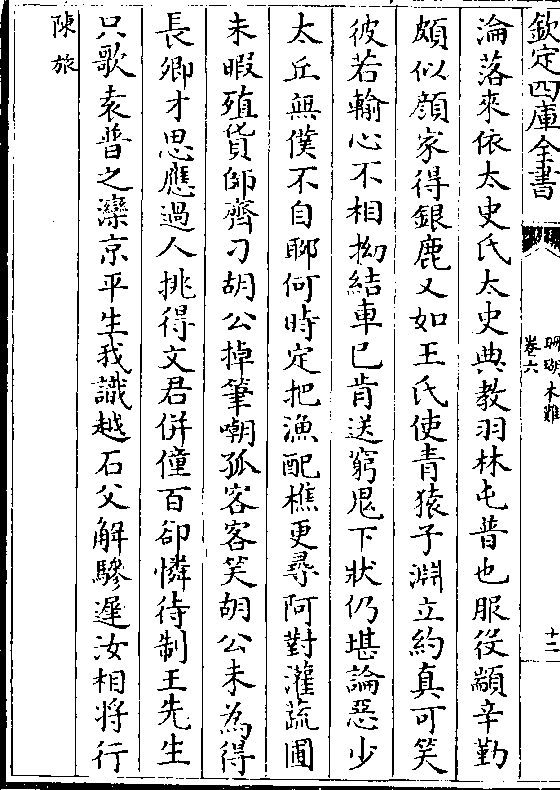 欽定四庫全書
珊瑚木難
卷六
十三
淪落來依太史氏太史典教羽林屯普也服役顓辛勤
頗似顔家得銀鹿又如王氏使青猿子淵立約真可笑
彼若輸心不相拗結車已肯送窮鬼下狀仍堪論惡少
太丘無僕不自聊何時定把漁配樵更尋阿對灌蔬圃
未暇殖貨師齊刁胡公掉筆嘲孤客客笑胡公未為得
長卿才思應過人挑得文君併僮百卻憐待制王先生
只歌袁普之灤京平生我識越石父解驂遲汝相將行
陳旅